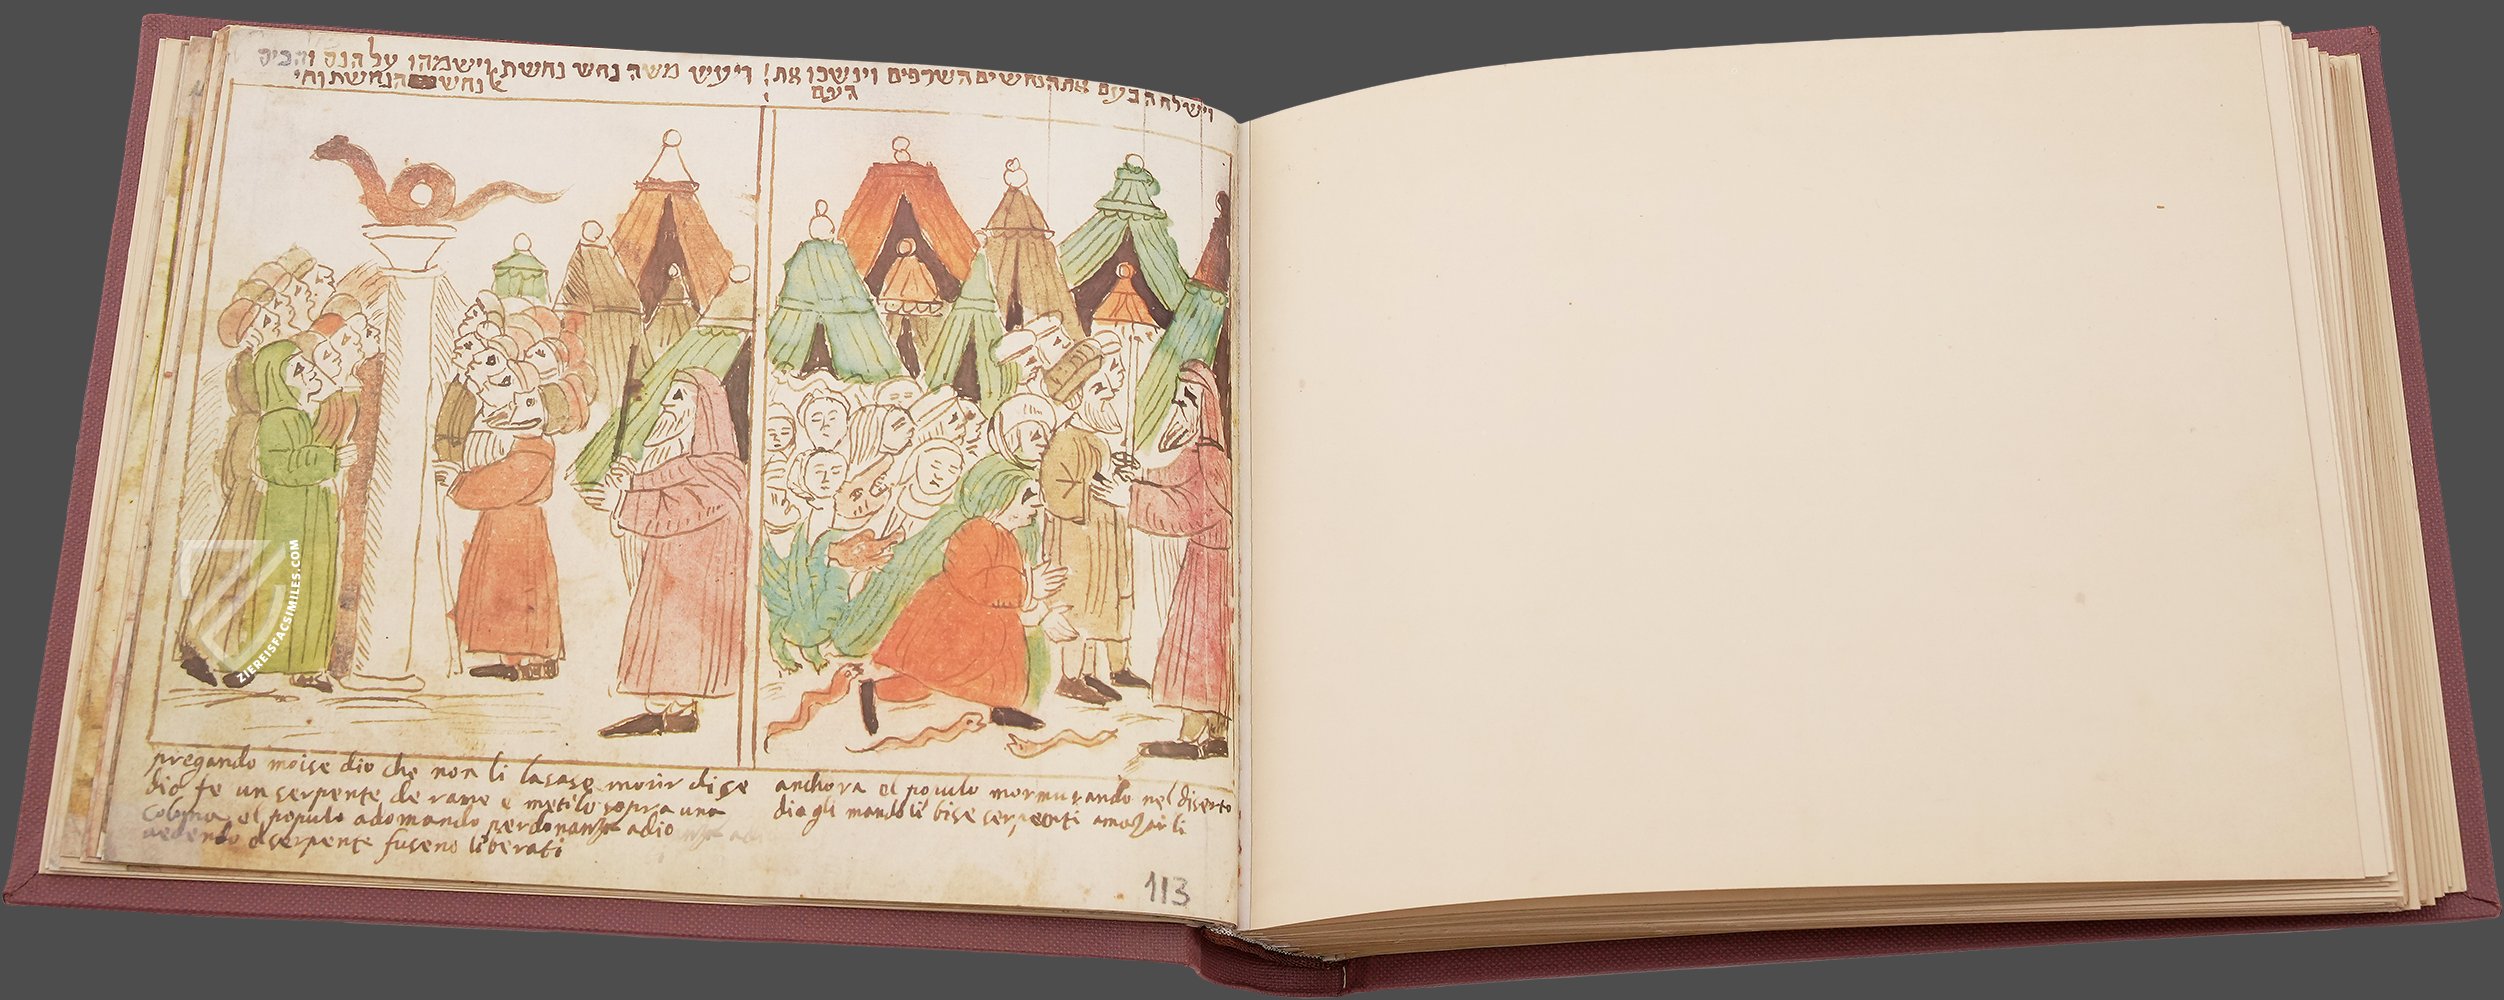 וישלח ה בעם את הנחשים השרפים וינשכו את
העם
ויעש משה נחש נחשת וישמהו על הנס והביט
אל נחש הנחשת וחי
anchora el populo mormurando nel diserto
dio gli mando li bise serpenti amazarli
pregando moise dio che non li lasase morir dise
dio fe un serpente de rame e metilo sopra una
colona el populo adomando perdonanza adio
vedendo el serpente fuseno liberati
113
ZIEREISFACSIMILES.COM